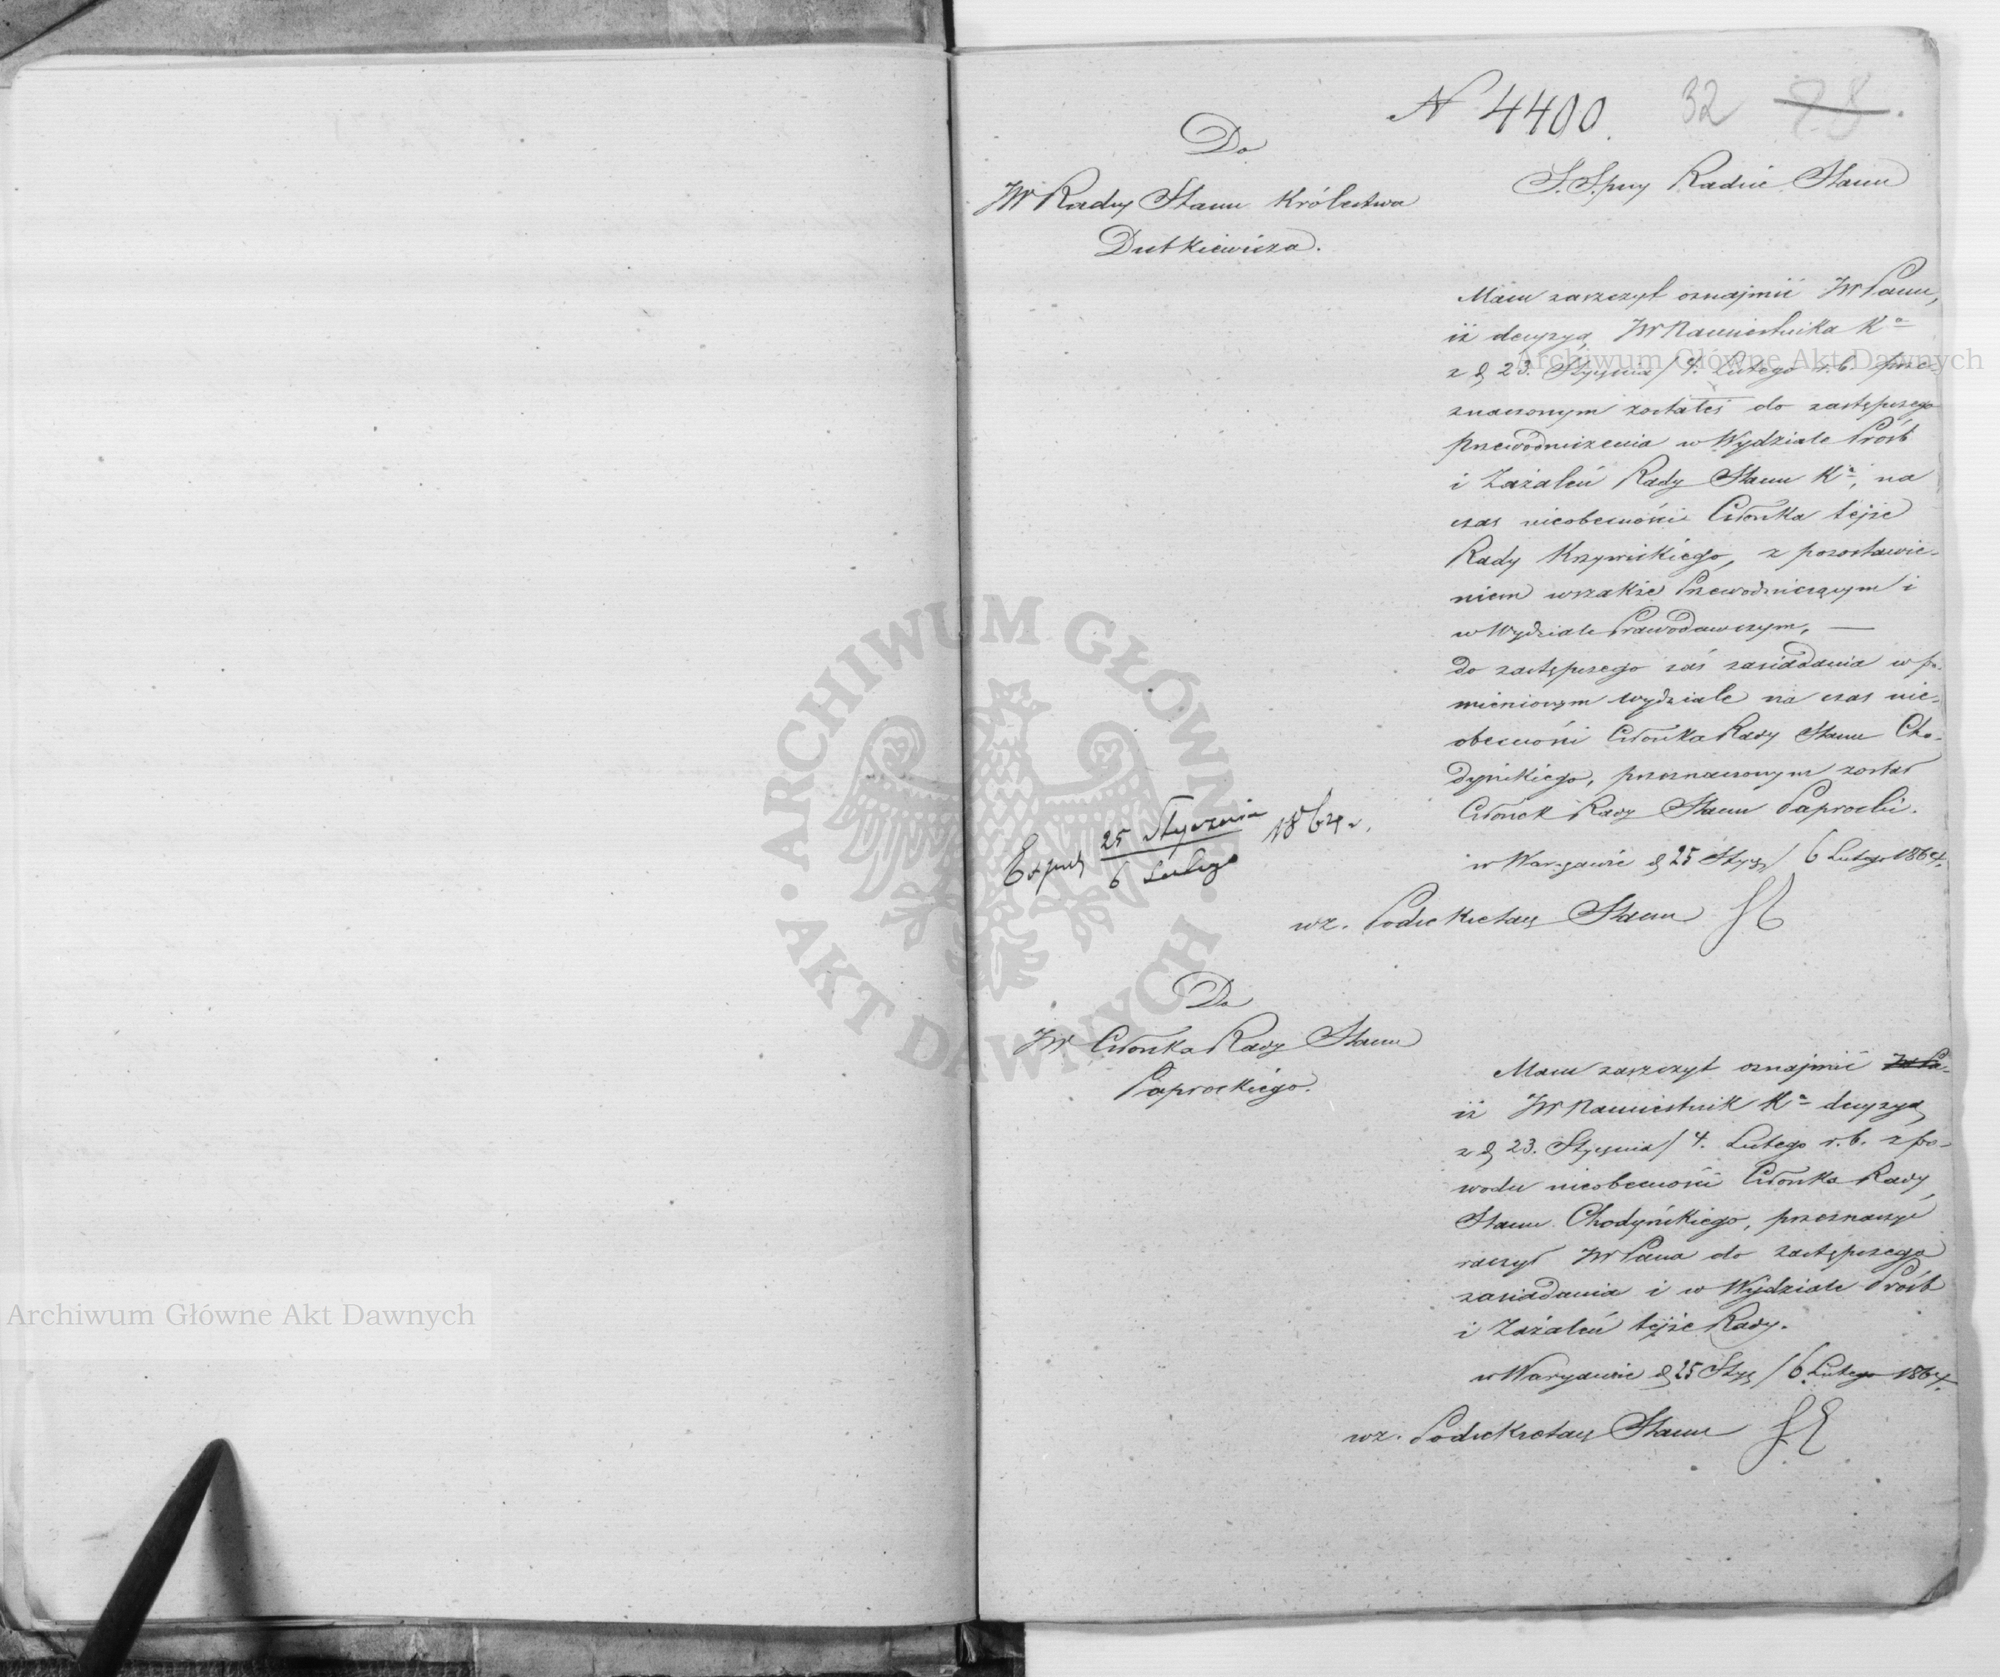 N 4400.
32
28.
Do
JW Radcy Stanu Królestwa
Dutkiewicza.
Radzie Stanu
Mam zaszczyt oznajmić JWPanu,
iż decyzyą JW Namiestnika Ka
z d 23. Stycznia / 4. Lutego r.b. prze-
znaczonym zostałeś do zastępczego
przewodniczenia w Wydziale Próśb
i Zażaleń Rady Stanu Ka, na
czas nieobecności Członka tejże
Rady Krzywickiego, z pozostawie-
niem wszakże Przewodniczącym i
w Wydziale Prawodawczym, —
do zastępczego zaś zasiadania w po-
mienionym wydziale na czas nie-
obecności Członka Rady Stanu Cho-
dyńskiego, przeznaczonym został
Członek Rady Stanu Paprocki.
w Warszawie d 25 Stycz / 6 Lutego 1864.
Exped 25 Stycznia 1864 r.
6 Lutego
wz. Podsekretarz Stanu
Do
JW Członka Rady Stanu
Paprockiego.
Mam zaszczyt oznajmić JWPa-
iż JW Namiestnik Ka decyzyą
z d 23. Stycznia / 4. Lutego r.b. z po-
wodu nieobecności Członka Rady
Stanu Chodyńskiego, przeznaczyć
raczył JWPana do zastępczego
zasiadania i w Wydziale Próśb
i Zażaleń tejże Rady.
w Warszawie d 25 Stycz / 6 Lutego 1864.
wz. Podsekretarz Stanu
Archiwum Główne Akt Dawnych
Archiwum Główne Akt Dawnych
ARCHIWUM GŁÓWNE AKT DAWNYCH